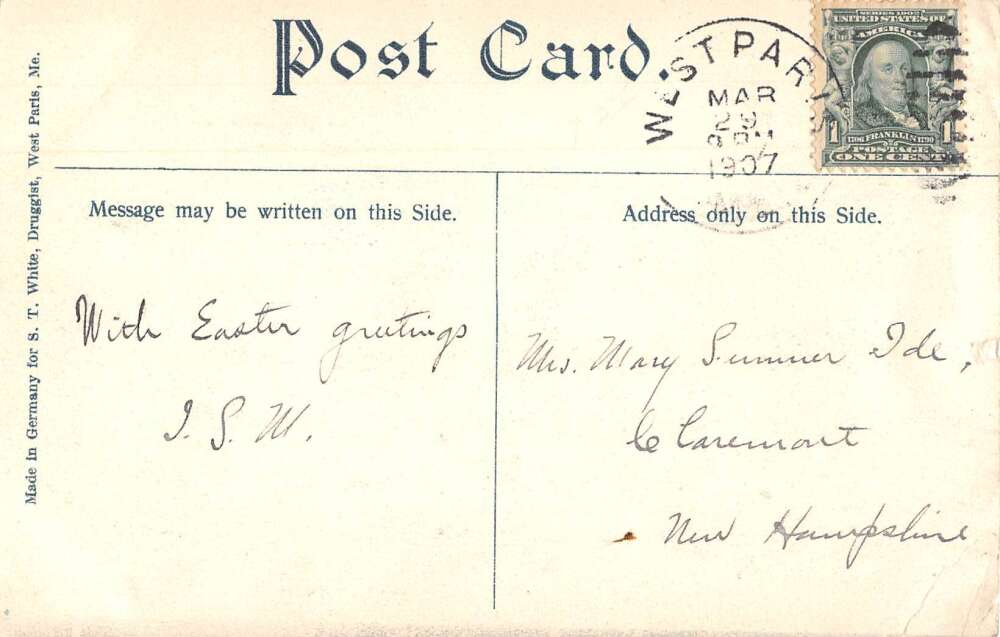 Post Card.
WEST PARIS
MAR
29
1907
SERIES 1902
UNITED STATES OF
AMERICA
1706 FRANKLIN 1790
1 POSTAGE 1
ONE CENT
Message may be written on this Side.
Address only on this Side.
With Easter greetings
I. S. W.
Mrs. Mary Sumner Ide,
Claremont
New Hampshire
Made in Germany for S. T. White, Druggist, West Paris, Me.